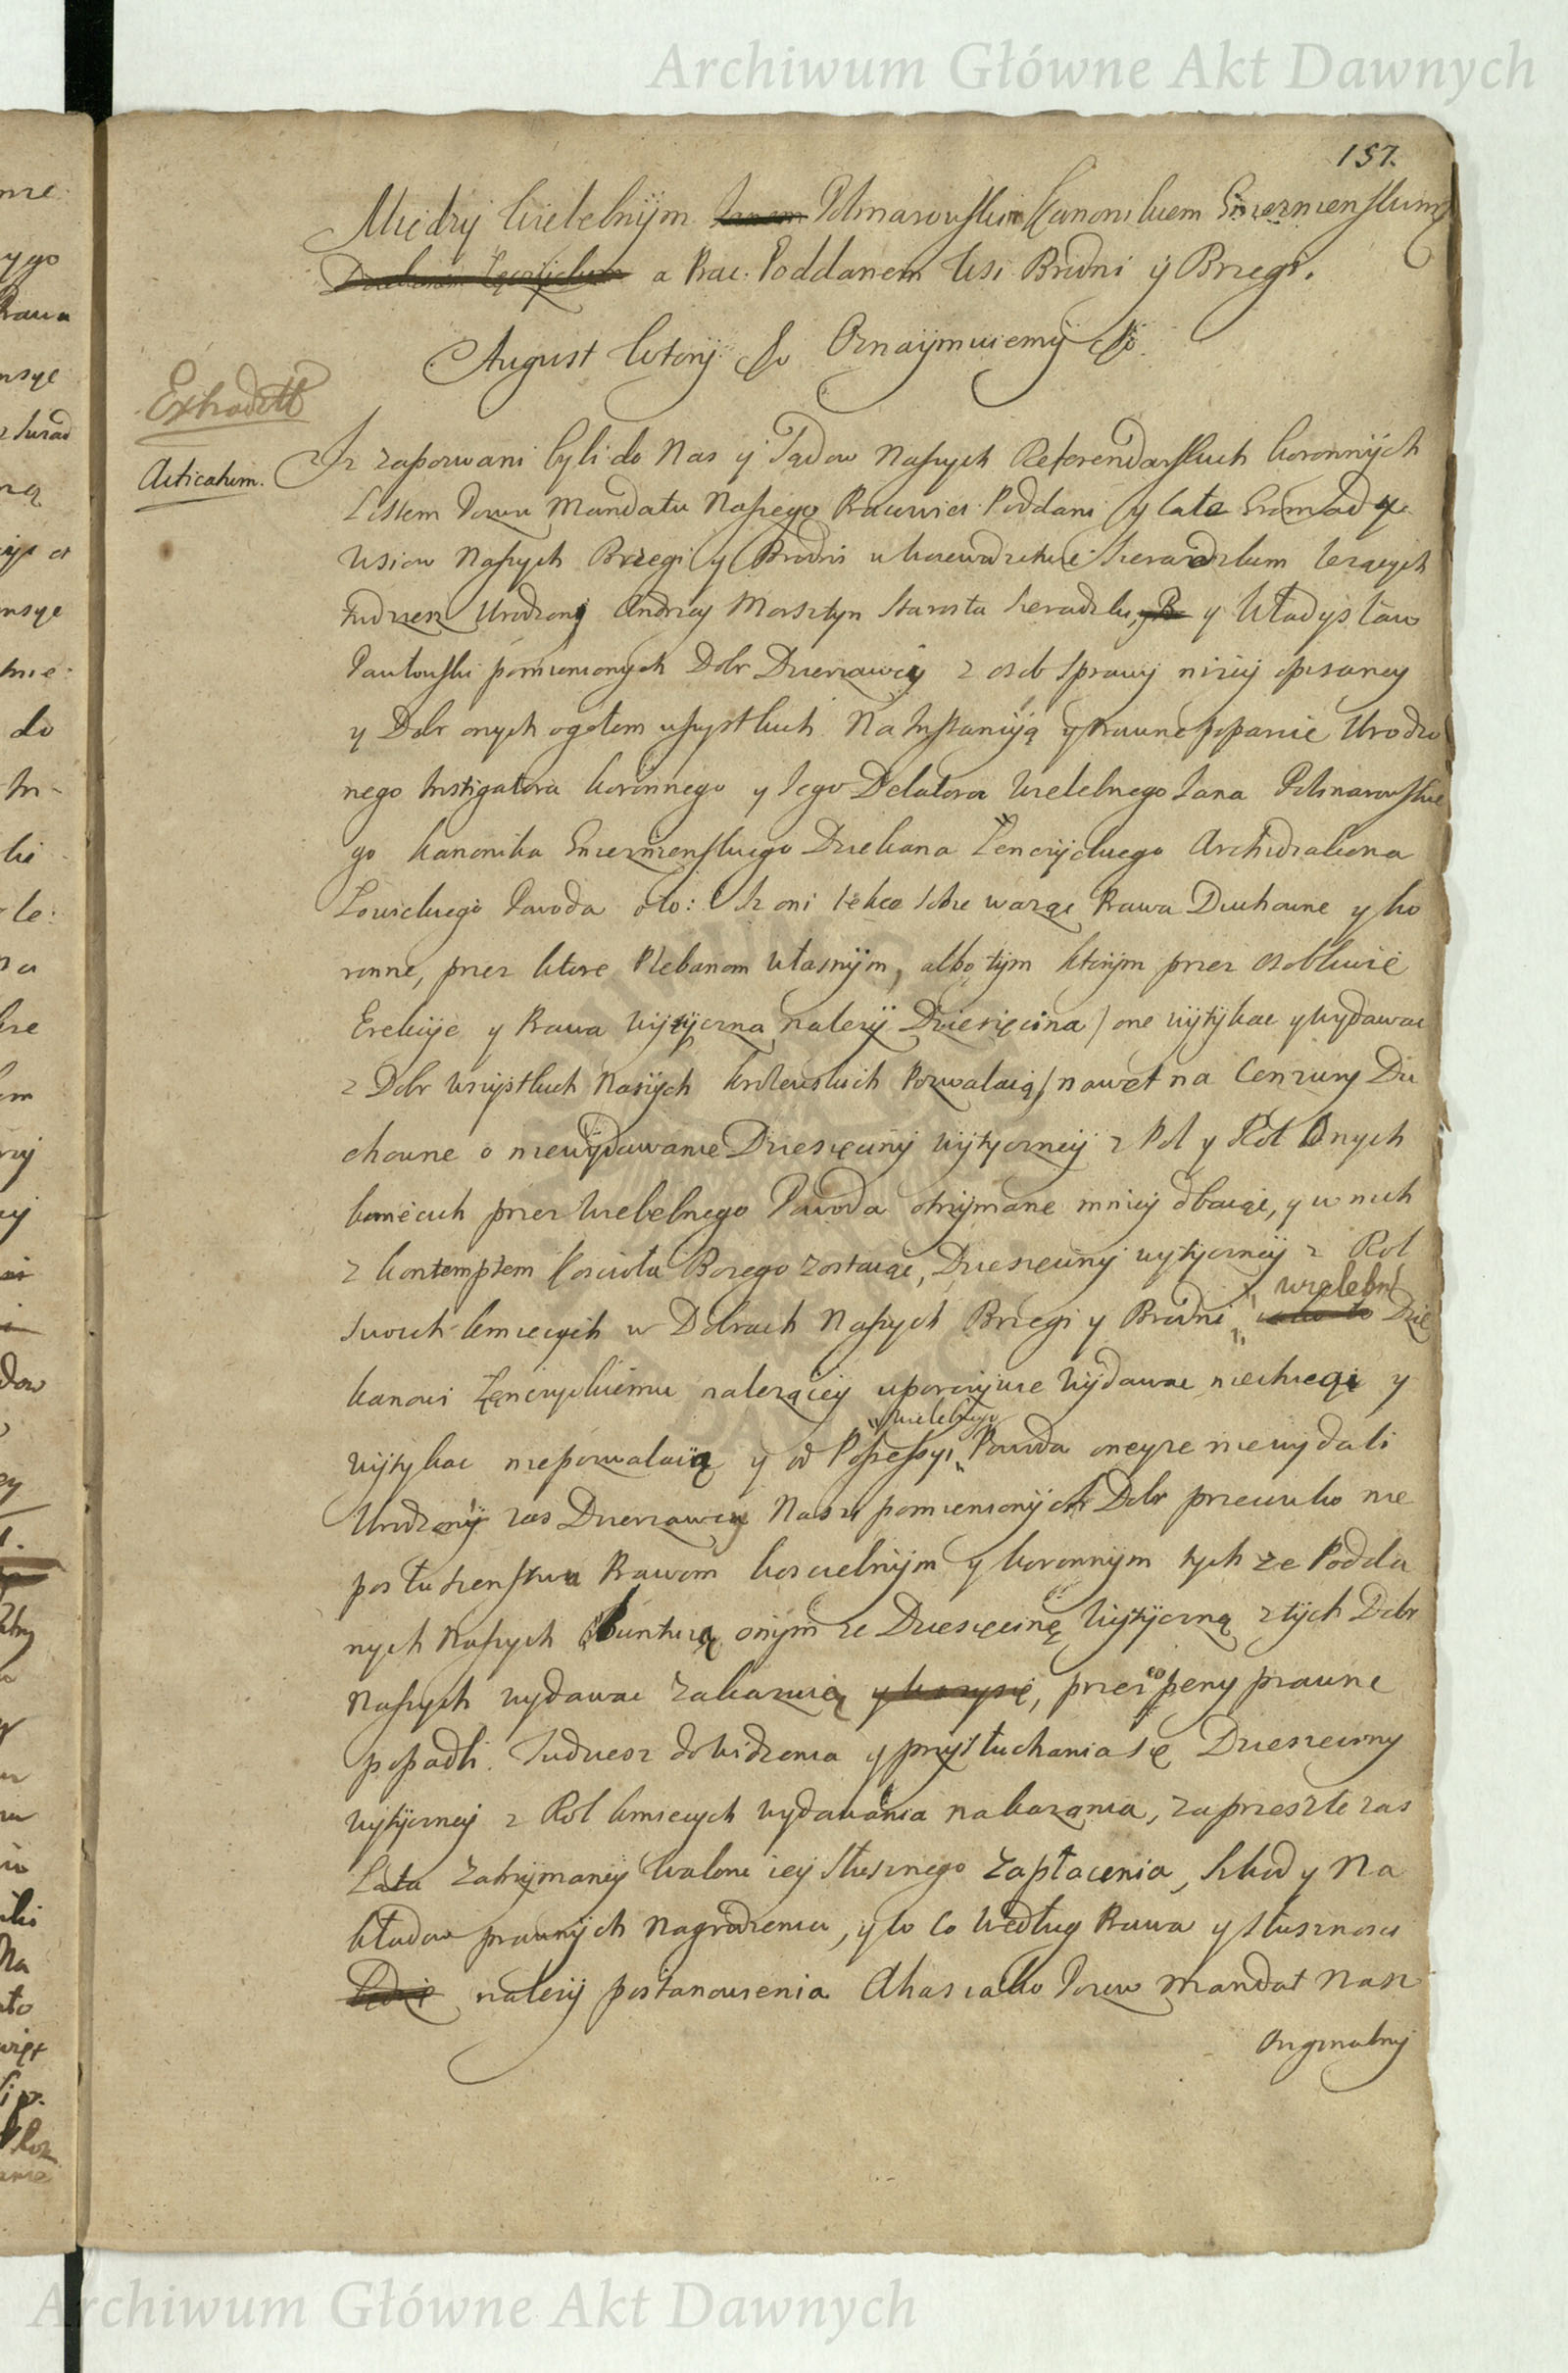 Archiwum Główne Akt Dawnych
157.
Między Wielebnym Janem Polmarowskim Kanonikiem Gnieznienskim
a Prac: Poddanem Wsi Brodni y Brzegi.
August Wtory Oznaymuiemy
Extraditt
Acticatum.
Iz zapozwani byli do Nas y Sądow Naszych Referendarskich Koronnych
Listem Pozwu Mandatu Naszego Pracowici Poddani y całe Gromady
Wsiow Naszych Brzegi y Brodni w Woiewodztwie Sieradzkim lezących
tudziesz Urodzony Andrzey Morsztyn Starosta Sieradzki, y Władysław
Pawłowski pomienionych Dobr Dzierzawcy z osob sprawy nizey opisaney
y Dobr onych ogołem wszystkich Na Instancyją y Prawne popanie Urodzo
nego Instigatora Koronnego y Jego Delatora Wielebnego Jana Polmarowskie
go Kanonika Gnieznienskiego Dziekana Łenczyckiego Archidiakona
Łowickiego Powoda oto: Iz oni lekce sobie waząc Prawa Duchowne y ko
ronne, przez ktore Plebanom własnym, albo tym ktorym przez osobliwie
Erekcyie y Prawa wytyczna nalezy Dziesięcina / one wytykac y wydawac
z Dobr wszystkich Naszych krolewskich Pozwalaią / nawet na Cenzury Du
chowne o niewydawanie Dziesięciny wytyczney z Pol y Rol Onych
kmiecich przez Wielebnego Powoda otrzymane mniey dbaiąc, y w nich
z kontemptem Koscioła Bozego zostaiąc, Dziesięciny wytyczney z Rol
swoich kmiecych w Dobrach Naszych Brzegi y Brodni Wielebn Dzie
kanowi Łęnczyckiemu nalezącey uporczywie wydawac niechcąc y
wytykac niepozwalaią y od Possessyi Wielebnego Powoda oneyze niewydali
Urodzony zas Dzierzawcy Nasi pomienionych Dobr przeciwko nie
posłuszenstwu Prawom koscielnym y koronnym tychze Podda
nych Naszych buntuią onym ze Dziesięcinę Wytyczną z tych Dobr
Naszych wydawac Zakazuią y karzysię, przez co peny prawne
popadli. Tudziesz dowidzenia y przysłuchania się Dziesięciny
wytyczney z Rol kmiecych wydawania nakazania, zaprzeszłe zas
Lata Zatrzymaney walorie iey słusznego zapłacenia, Szkod y Na
kładow prawnych nagrodzenia, y to co według Prawa y słusznosci
nalezy postanowienia Ahas iako Pozew Mandat Nasz
Orginalny
Archiwum Główne Akt Dawnych